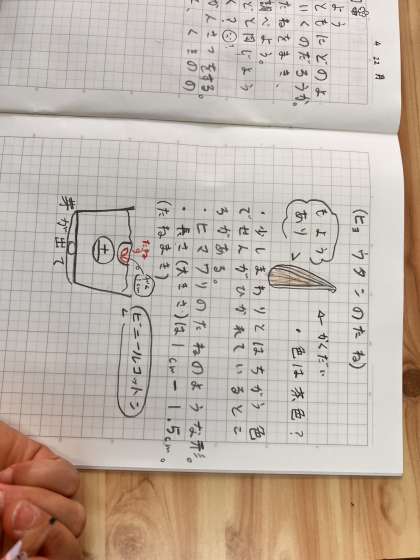 4 22 月
ともにどのよ
いくのだろうか。
たねをまき、
調べよう。
とで同じよう
んさつをする。
(ヒョウタンのたね)
もよう
あり
←かくだい
・色は茶色?
・少しまわりとはちがう色
でせんがひかれているとこ
ろがある。
・ヒマワリのたねのような形。
・長さ(大きさ)は1cm-1.5cm。
(たねまき)
たね
土
ビニールコットン
芽が出て